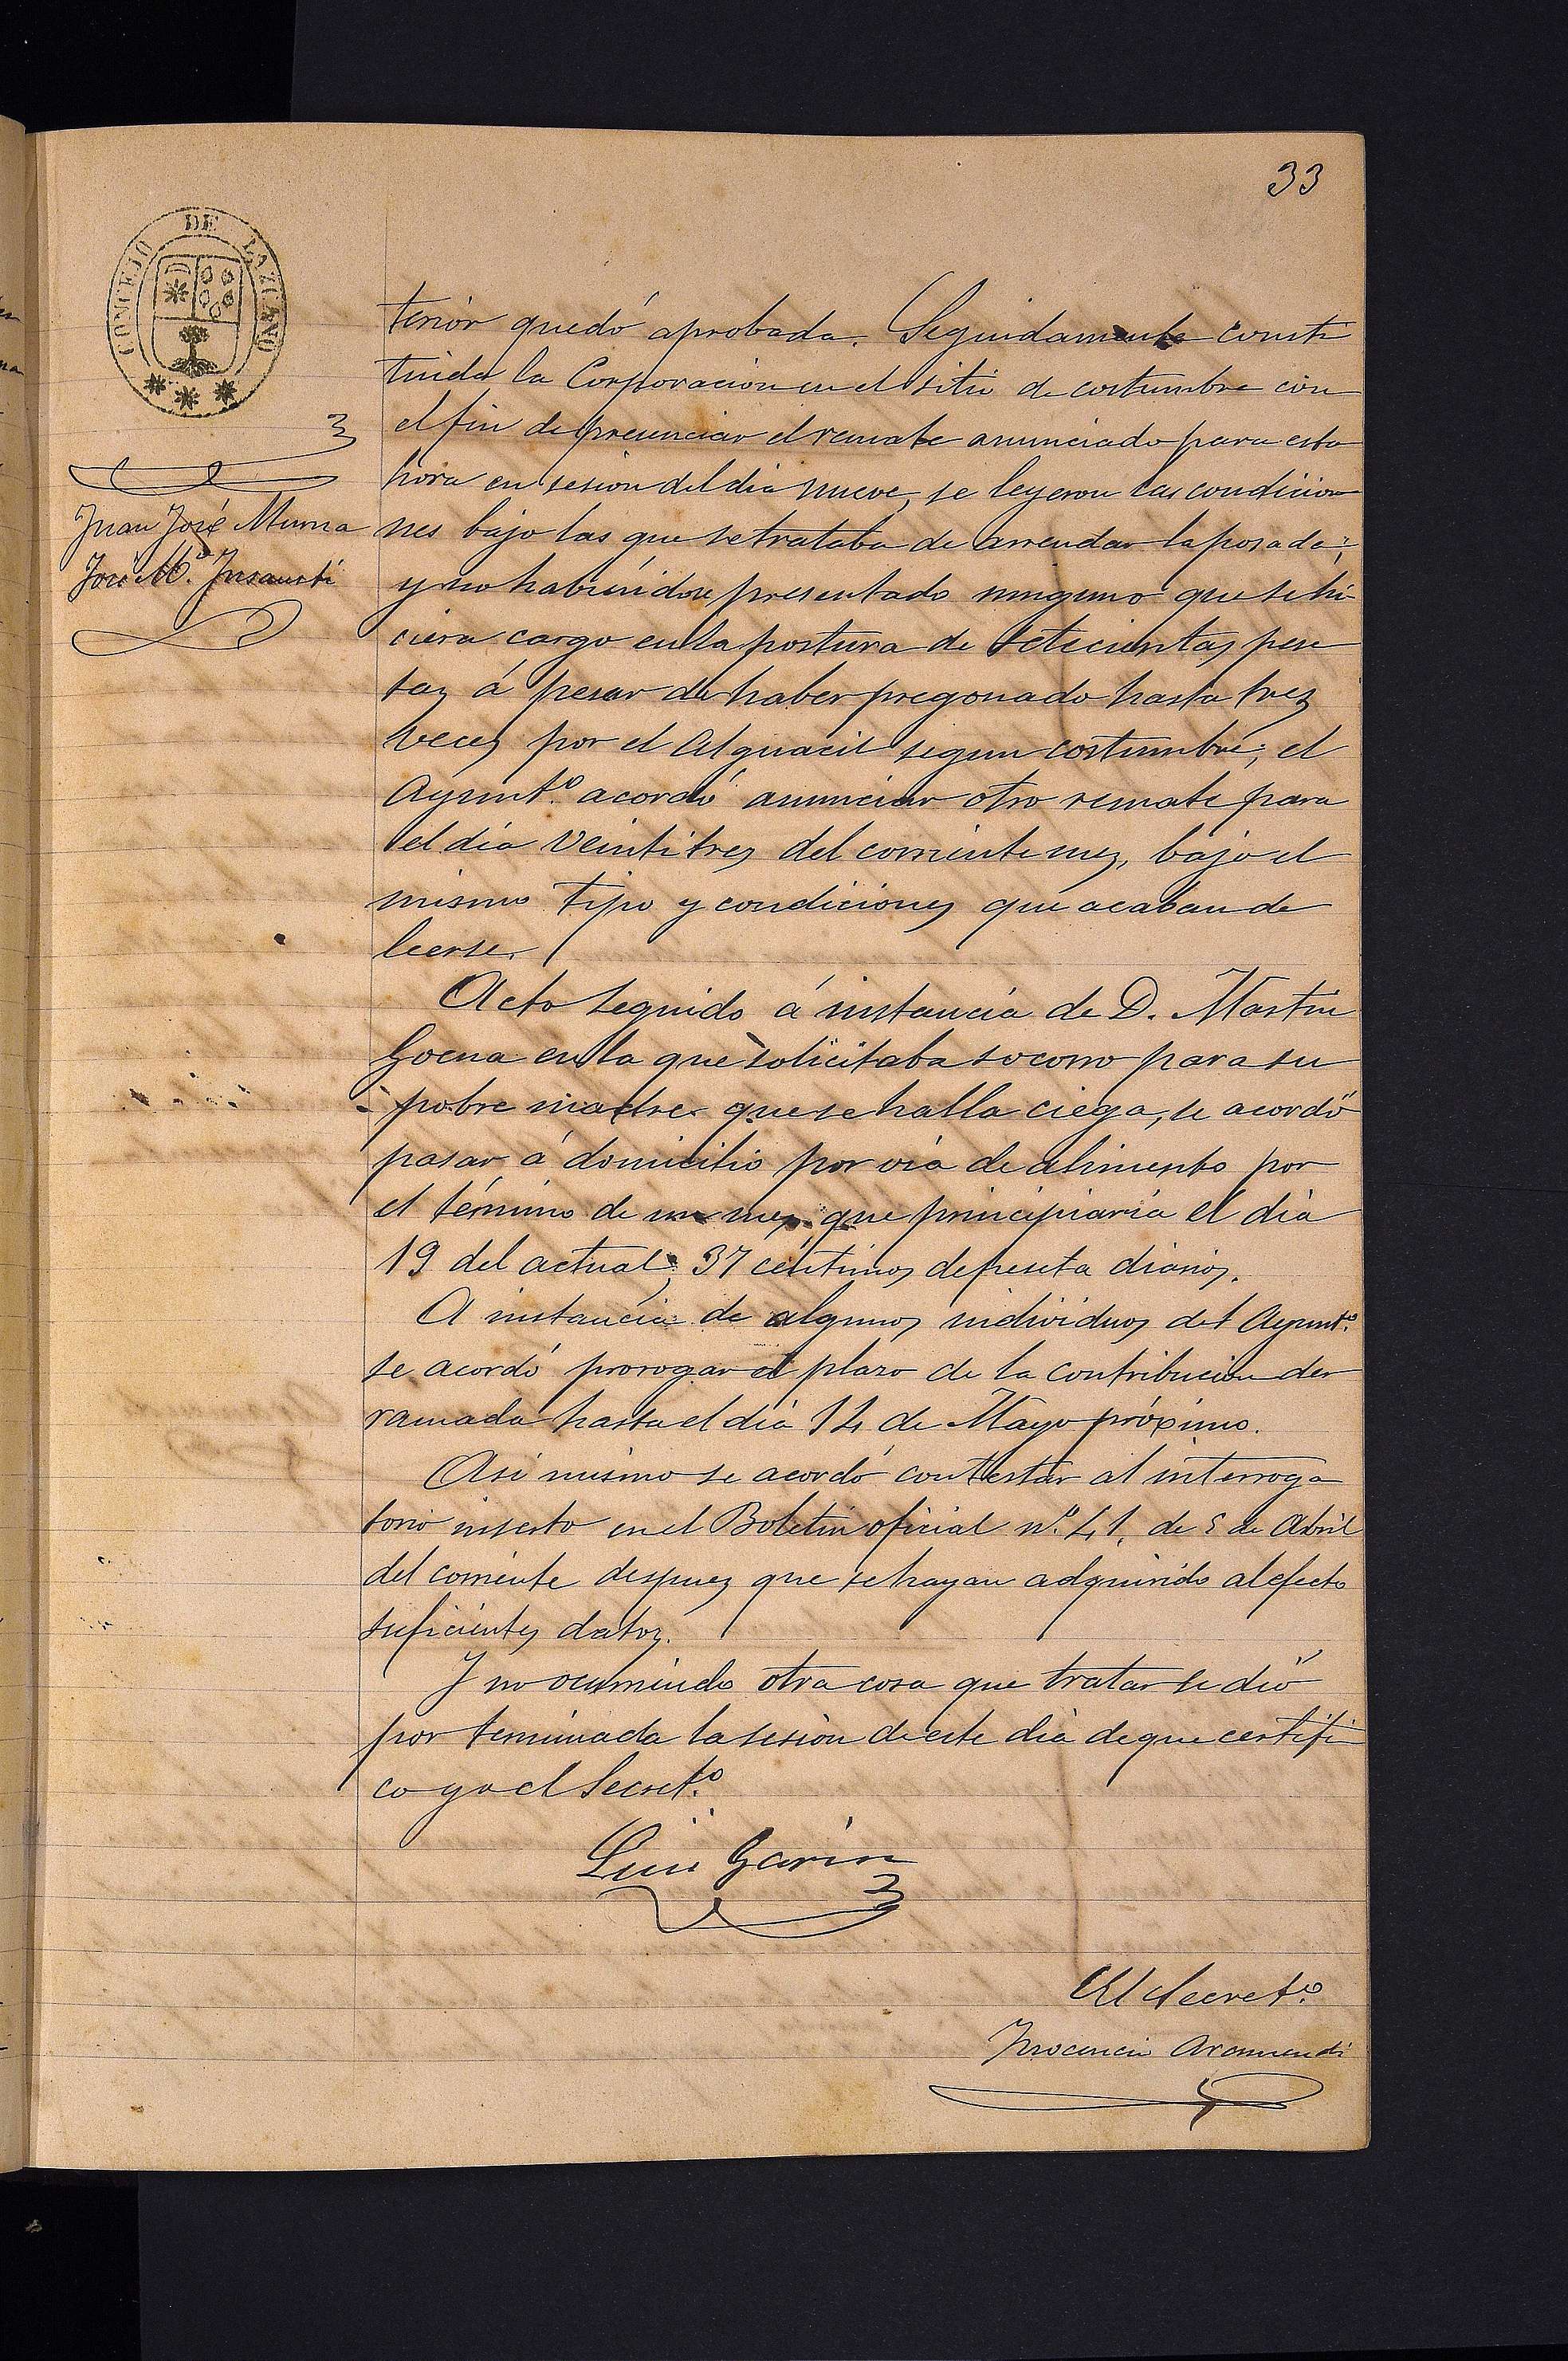 33
CONCEJO DE LAZCANO
Juan José Murua
José M.ª Insausti
terior quedó aprobada. Seguidamente consti
tuida la Corporacion en el sitio de costumbre con
el fin de presenciar el remate anunciado para esta
hora en sesion del dia nueve, se leyeron las condicio
nes bajo las que se trataba de arrendar la posada;
y no habiéndose presentado ninguno que se hi
ciera cargo en la postura de setecientas pese
tas á pesar de haber pregonado hasta tres
veces por el Alguacil segun costumbre; el
Ayunt.º acordó anunciar otro remate para
el dia veintitres del corriente mes, bajo el
mismo tipo y condiciones que acaban de
leerse.
Acto seguido á instancia de D. Martin
Goena en la que solicitaba socorro para su
pobre madre que se halla ciega, se acordó
pasar á domicilio por via de alimento por
el término de un mes que principiaria el dia
19 del actual, 37 céntimos de peseta diarios.
A instancia de algunos individuos del Ayunt.º
se acordó prorogar el plazo de la contribucion der
ramada hasta el dia 14 de Mayo próximo.
Asi mismo se acordó contestar al interroga
torio inserto en el Boletin oficial n.º 41, de 5 de Abril
del corriente despues que se hayan adquirido al efecto
suficientes datos.
Y no ocurriendo otra cosa que tratar se dió
por terminada la sesion de este dia de que certifi
co yo el Secret.º
Luis Garin
El Secret.º
Inocencio Aramendi